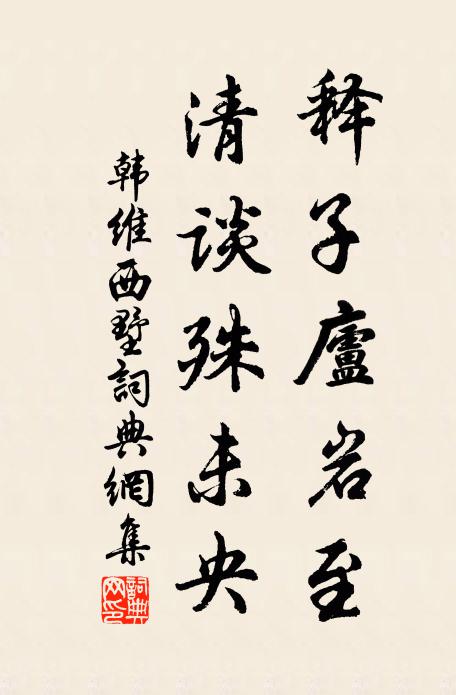 释子廬岩至
清谈殊未央
韩维西墅詞典網集
詞典网印